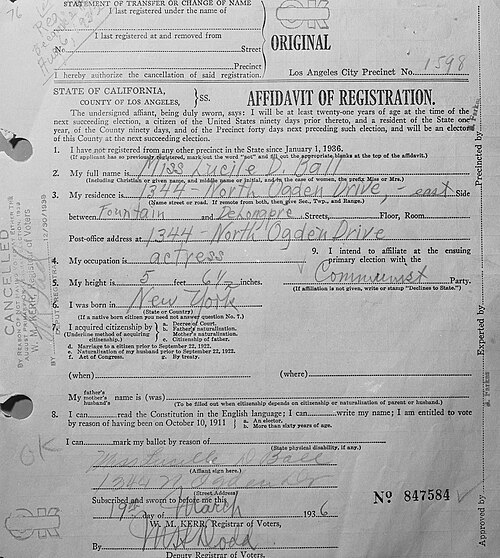 76
STATEMENT OF TRANSFER OR CHANGE OF NAME
I last registered under the name of
I last registered at and removed from
Street
Precinct
I hereby authorize the cancellation of said registration.
OK
ORIGINAL
Los Angeles City Precinct No. 1598
STATE OF CALIFORNIA,
COUNTY OF LOS ANGELES, } SS.
AFFIDAVIT OF REGISTRATION.
The undersigned affiant, being duly sworn, says: I will be at least twenty-one years of age at the time of the
next succeeding election, a citizen of the United States ninety days prior thereto, and a resident of the State one
year, of the County ninety days, and of the Precinct forty days next preceding such election, and will be an elector
of this County at the next succeeding election.
1. I have not registered from any other precinct in the State since January 1, 1936.
(If applicant has so previously registered, mark out the word "not" and fill out the appropriate blanks at the top of the affidavit.)
2. My full name is Miss Lucille D. Ball
(Including Christian or given name, and middle name or initial, and in the case of women, the prefix Miss or Mrs.)
3. My residence is 1344 - North Ogden Drive, - east Side
(Name street or road. If remote from both, then give Sec., Twp., and Range.)
between Fountain and DeLongpre Streets, Floor, Room
Post-office address at 1344 - North Ogden Drive
4. My occupation is actress
5. My height is 5 feet 6½ inches.
6. I was born in New York
(State or Country)
(If a native born citizen you need not answer question No. 7.)
9. I intend to affiliate at the ensuing
primary election with the
Communist Party.
(If affiliation is not given, write or stamp "Declines to State.")
7. I acquired citizenship by
(Underline method of acquiring
citizenship.)
a. Decree of Court.
b. Father's naturalization.
c. Mother's naturalization.
c. Citizenship of father.
d. Marriage to a citizen prior to September 22, 1922.
e. Naturalization of my husband prior to September 22, 1922.
f. Act of Congress.
g. By treaty.
(when) (where)
My father's
mother's
husband's name is (was)
(To be filled out when citizenship depends on citizenship or naturalization of parent or husband.)
8. I can read the Constitution in the English language; I can write my name; I am entitled to vote
by reason of having been on October 10, 1911 { a. An elector.
b. More than sixty years of age.
I can mark my ballot by reason of
(State physical disability, if any.)
Miss Lucille D Ball
(Affiant sign here.)
1344 N Ogden Dr
(Street Address)
Subscribed and sworn to before me this
19th day of March 1936
W. M. KERR, Registrar of Voters,
By
Deputy Registrar of Voters.
Nº 847584
OK
CANCELLED
W. M. KERR, Registrar of Voters
Precincted by
Experted by
Approved by